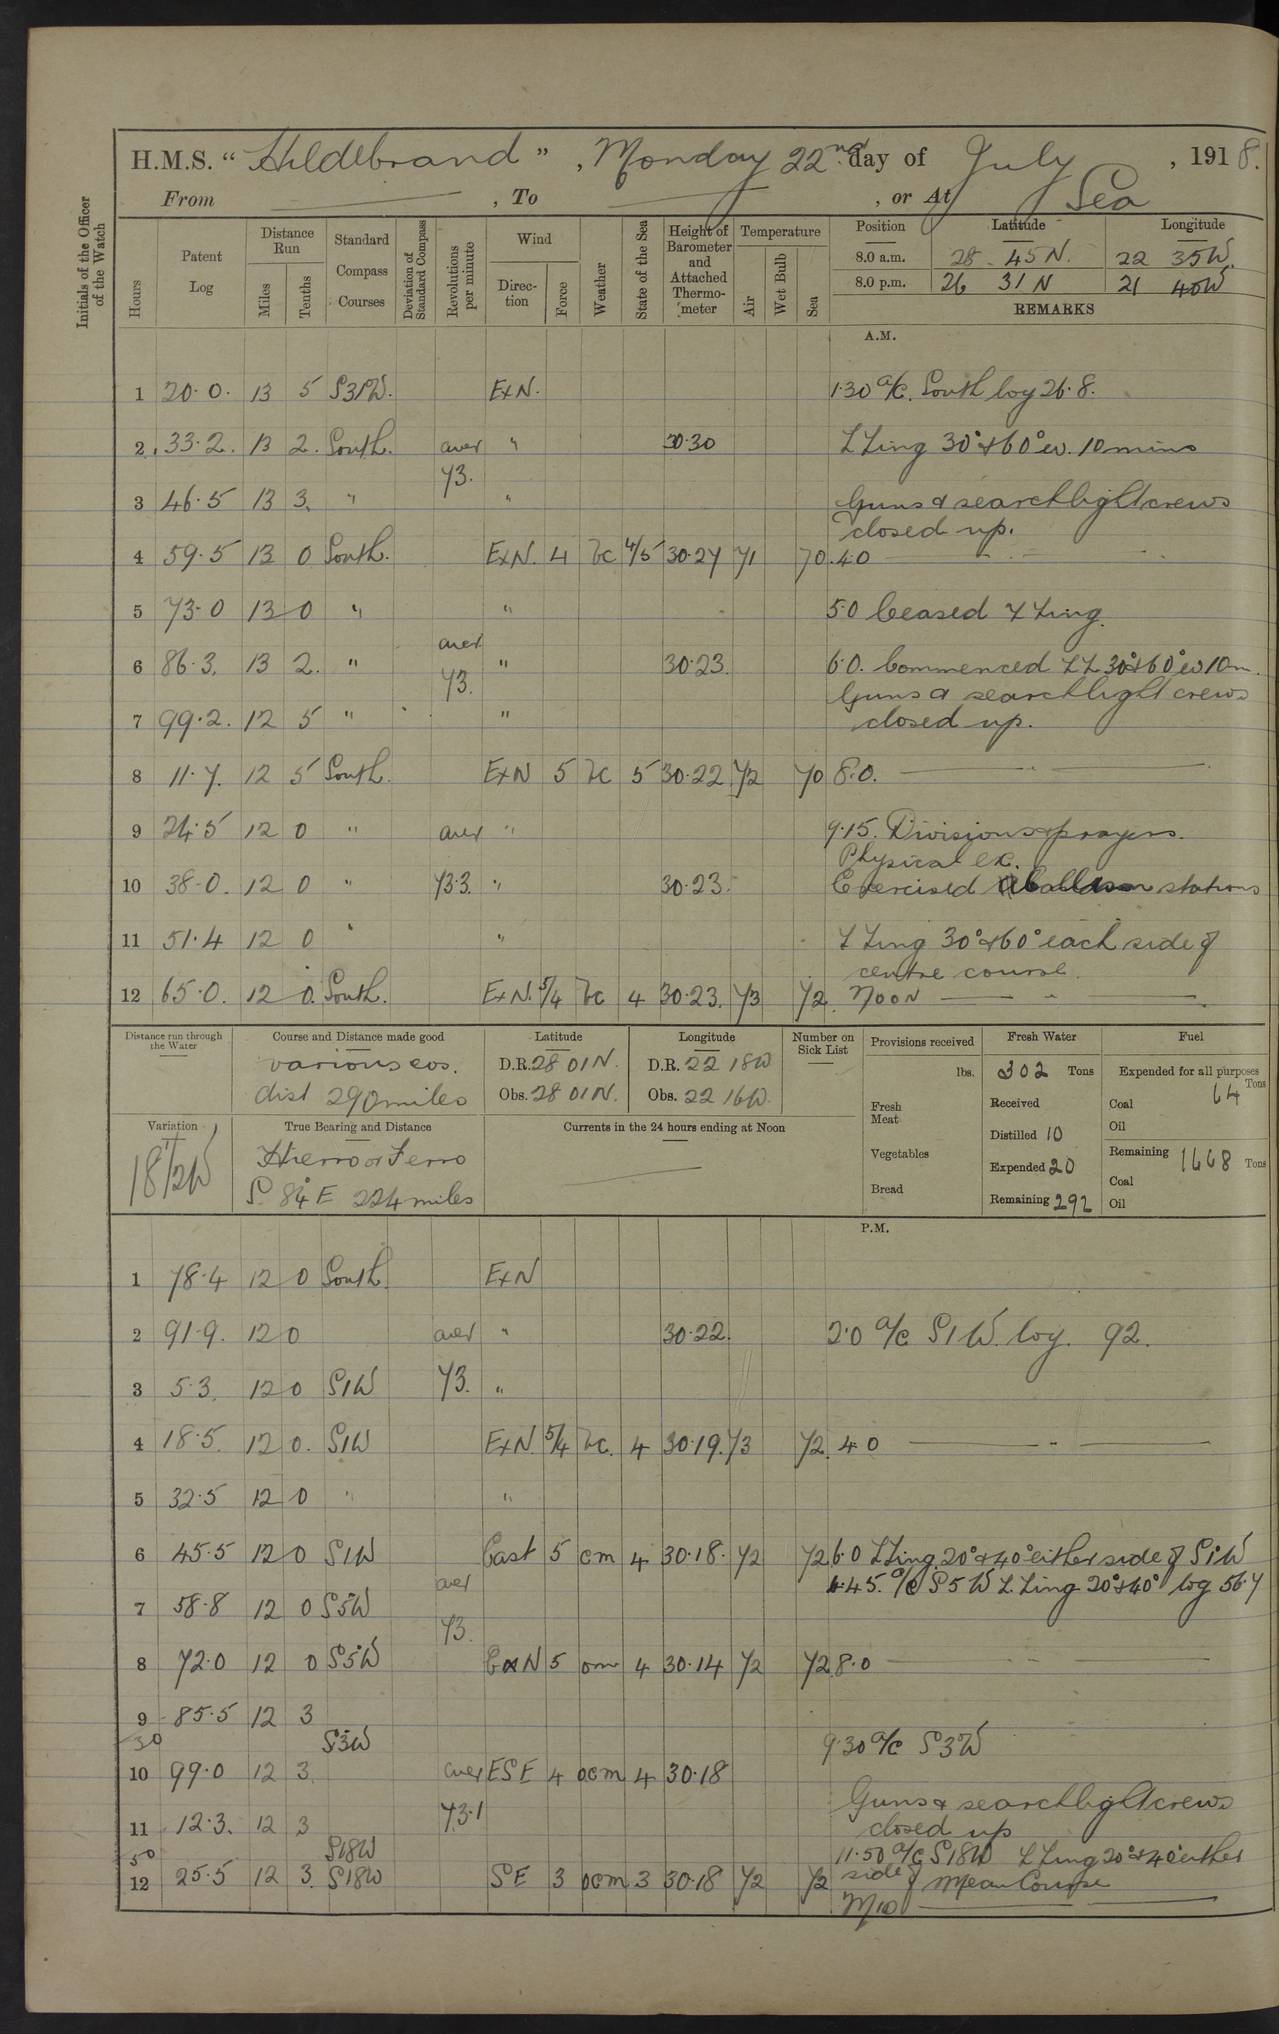 H.M.S. "Hildebrand", Monday 22nd day of July, 1918.
From —— , To —— , or At Sea
Initials of the Officer of the Watch
Hours Patent Log Distance Run Miles Tenths Standard Compass Courses Deviation of Standard Compass Revolutions per minute Wind Direction Force Weather State of the Sea Height of Barometer and Attached Thermometer Temperature Air Wet Bulb Sea Position Latitude Longitude
8.0 a.m. 28 45 N. 22 35 W.
8.0 p.m. 26 31 N 21 40 W
REMARKS
A.M.
1 20.0. 13 5 S31W. ExN. 1.30 a/c. South log 26.8.
2 33.2. 13 2. South. aver " 30.30 Z Zing 30° & 60° ev. 10 mins
73.
3 46.5 13 3. " " Guns & searchlight crews
closed up.
4 59.5 13 0 South. ExN. 4 bc 4/5 30.27 71 70 4.0 — " —
5 73.0 13 0 " " 5.0 Ceased Z Zing.
aver
6 86.3. 13 2. " " 30.23. 6.0. Commenced ZZ 30° & 60° ev 10m.
73. Guns & searchlight crews
7 99.2. 12 5 " " closed up.
8 11.7. 12 5 South. ExN 5 bc 5 30.22 72 70 8.0. — " —
9 24.5 12 0 " aver " 9.15. Divisions & prayers.
Physical ex.
10 38.0. 12 0 " 73.3. " 30.23. Exercised stations
11 51.4 12 0 " " Z Zing 30° & 60° each side of
centre course.
12 65.0. 12 0. South. ExN. 5/4 bc 4 30.23. 73 72. Noon — " —
Distance run through the Water Course and Distance made good Latitude Longitude Number on Sick List Provisions received Fresh Water Fuel
various cos. D.R. 28 01 N. D.R. 22 18 W lbs. 302 Tons Expended for all purposes
dist 290 miles Obs. 28 01 N. Obs. 22 16 W. Fresh Meat Received Coal 64 Tons
Oil
Variation True Bearing and Distance Currents in the 24 hours ending at Noon Distilled 10
18 1/2 W Hierro or Ferro —— Vegetables Expended 20 Remaining 1668 Tons
S. 84° E 224 miles Bread Remaining 292 Coal
Oil
P.M.
1 78.4 12 0 South. ExN
2 91.9. 12 0 aver " 30.22. 2.0 a/c S1W. log. 92.
3 5.3. 12 0 S1W 73. "
4 18.5. 12 0. S1W ExN. 5/4 bc. 4 30.19. 73 72. 4.0 — " —
5 32.5 12 0 " "
6 45.5 12 0 S1W East 5 cm 4 30.18. 72 72 6.0 Z Zing. 20° & 40° either side of S1°W
aver .45. a/c S5W Z. Zing 20° & 40° log 56.7
7 58.8 12 0 S5W
73.
8 72.0 12 0 S5°W ExN 5 om 4 30.14 72 72 8.0 — " —
9 85.5 12 3
30 S3°W 9.30 a/c S3W
10 99.0 12 3. aver ESE 4 ocm 4 30.18
Guns & searchlight crews
11 12.3. 12 3 73.1 closed up
50 S18W 11.50 a/c S18W Z Zing 20° & 40° either
12 25.5 12 3. S18W SE 3 ocm 3 30.18 72 72 side of Mean Course
Mid —